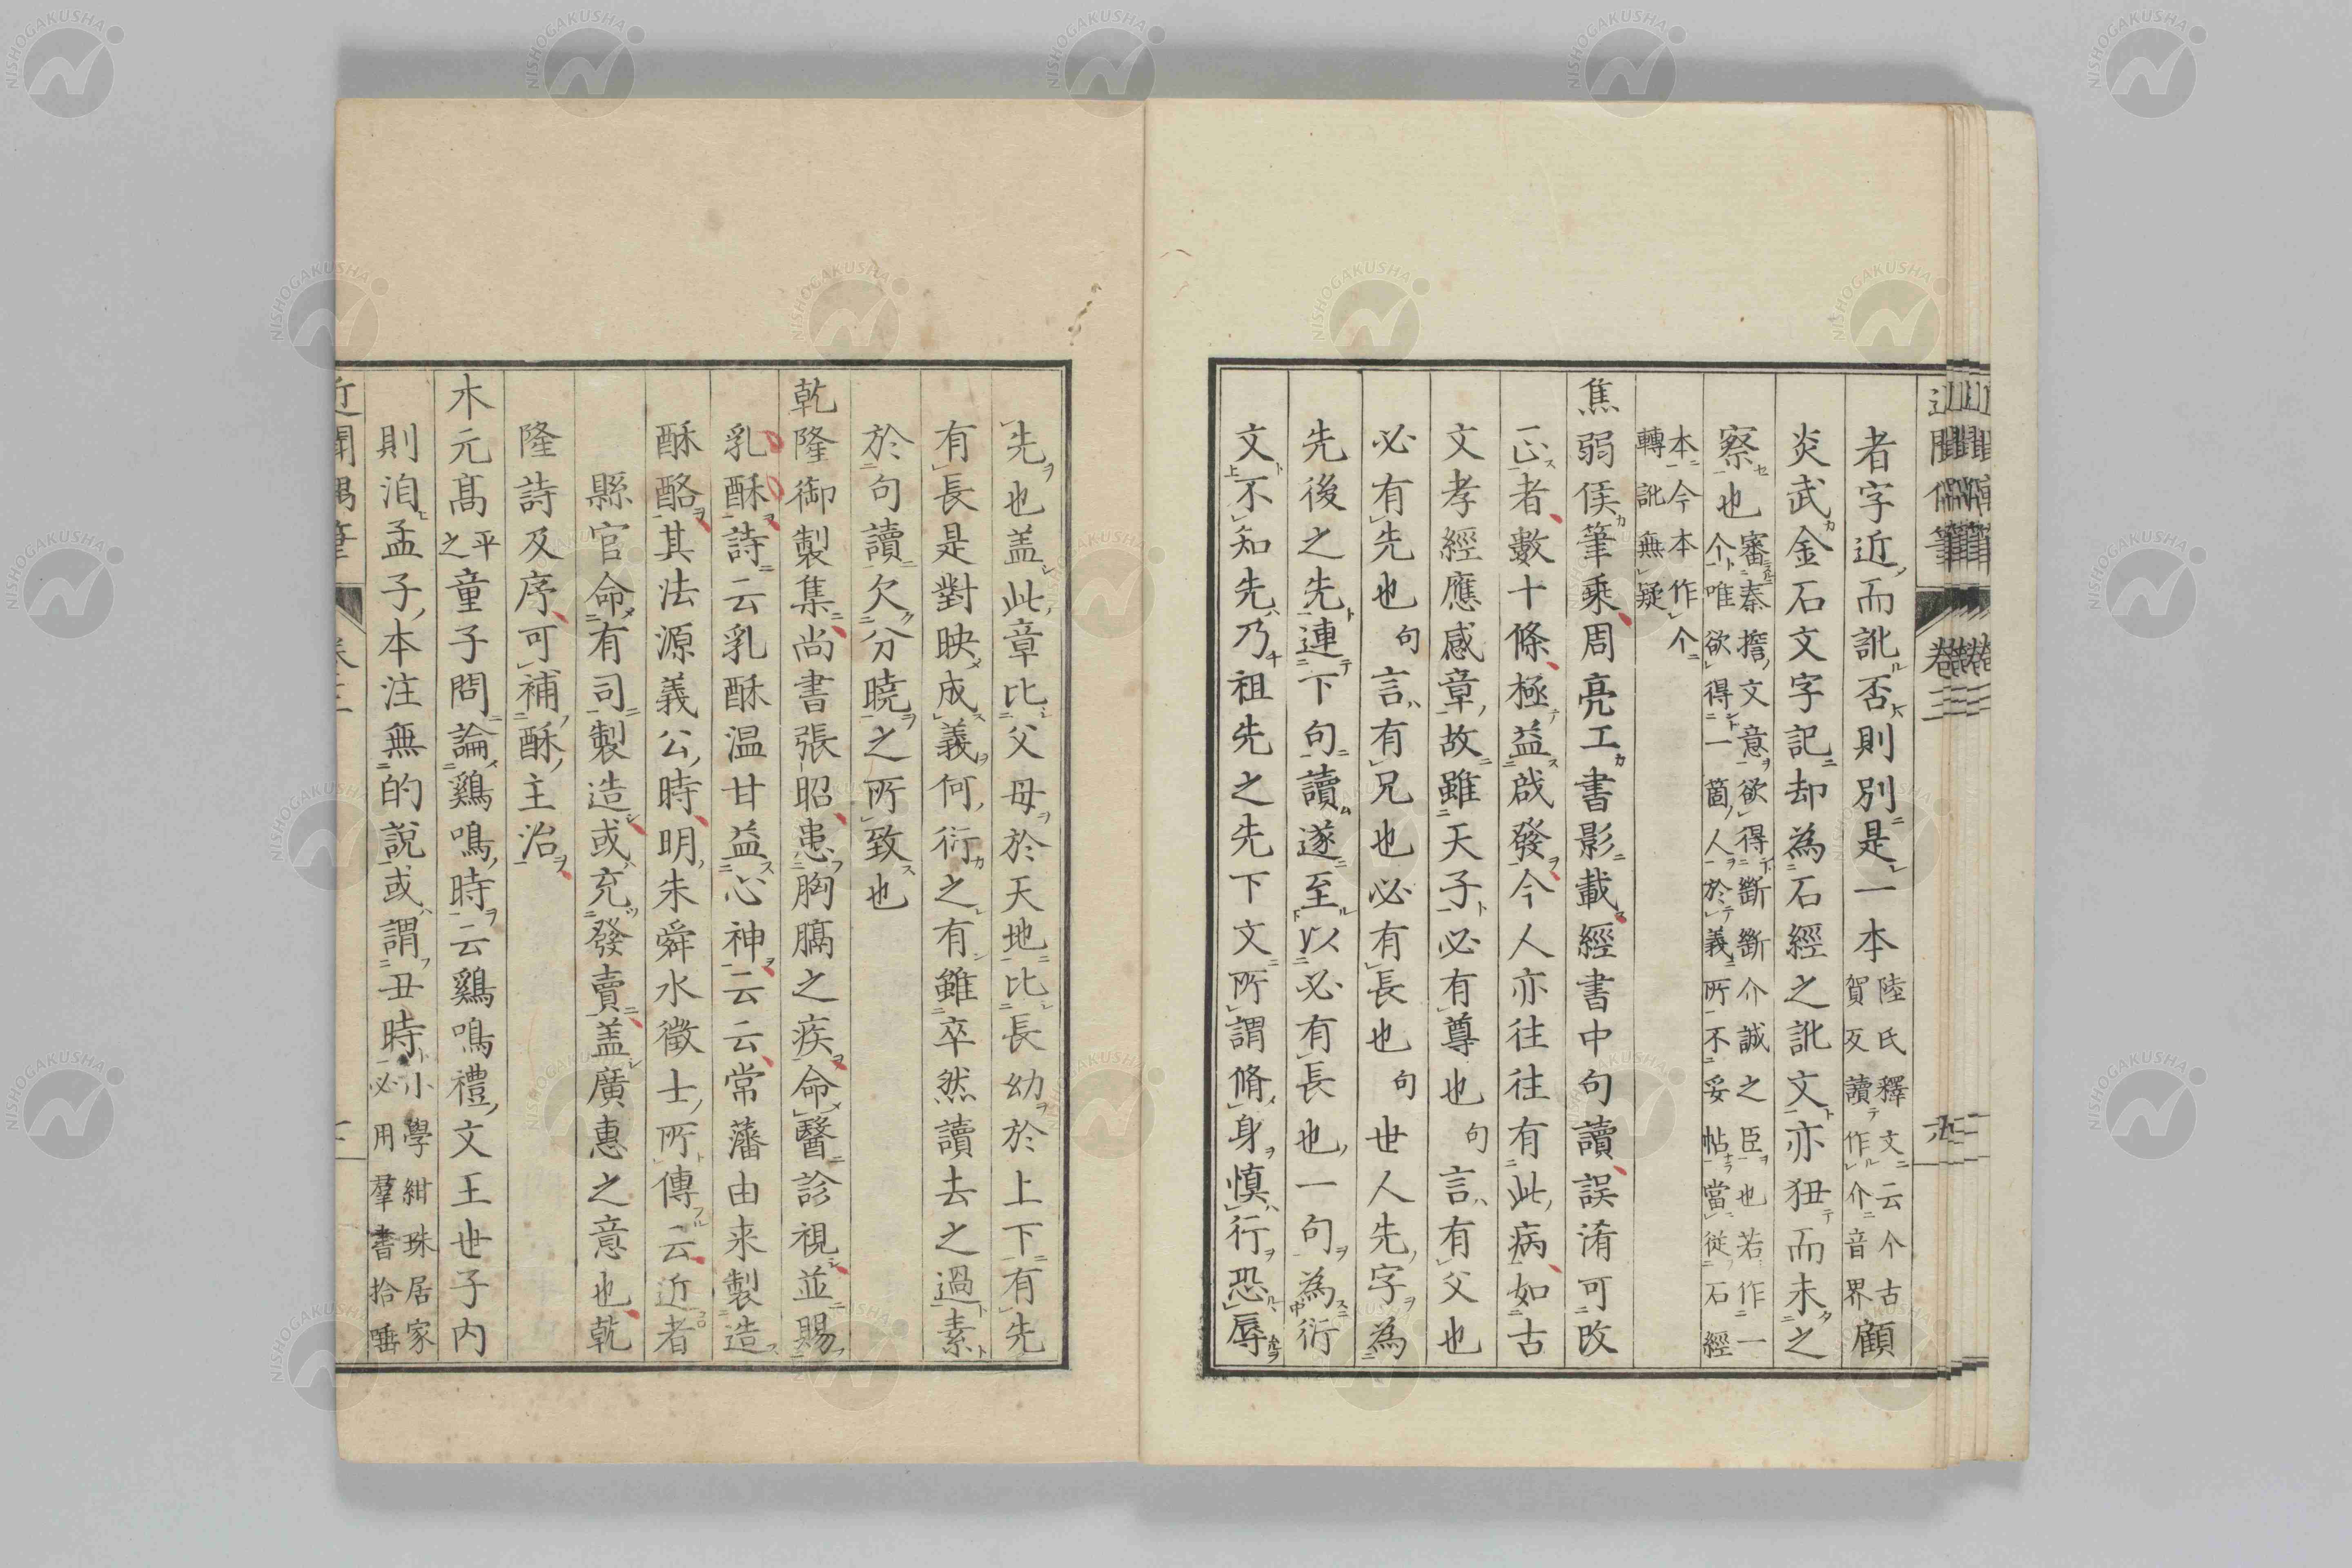 者字近而訛否則別是一本陸氏釋文云个古賀反讀作介音界顧
炎武金石文字記却為石經之訛文亦狃而未之
察也審秦擔文意欲得斷斷介誠之臣也若作一个唯欲得一箇人於義所不妥帖當從石經
本今本作个轉訛無疑
焦弱侯筆乘周亮工書影載經書中句讀誤淆可改
正者數十條極益啟發今人亦往往有此病如古
文孝經應感章故雖天子必有尊也句言有父也
必有先也句言有兄也必有長也句世人先字為
先後之先連下句讀遂至以必有長也一句為衍
文不知先乃祖先之先下文所謂脩身慎行恐辱
先也盖此章比父母於天地比長幼於上下有先
有長是對映成義何衍之有雖卒然讀去之過素
於句讀欠分曉之所致也
乾隆御製集尚書張昭患胸膈之疾命醫診視並賜
乳酥詩云乳酥温甘益心神云云常藩由来製造
酥酪其法源義公時明朱舜水徵士所傳云近者
縣官命有司製造或充發賣盖廣惠之意也乾
隆詩及序可補酥主治
木元高平之童子問論鷄鳴時云鷄鳴禮文王世子内
則洎孟子本注無的說或謂丑時小學紺珠居家必用羣書拾唾
近聞偶筆